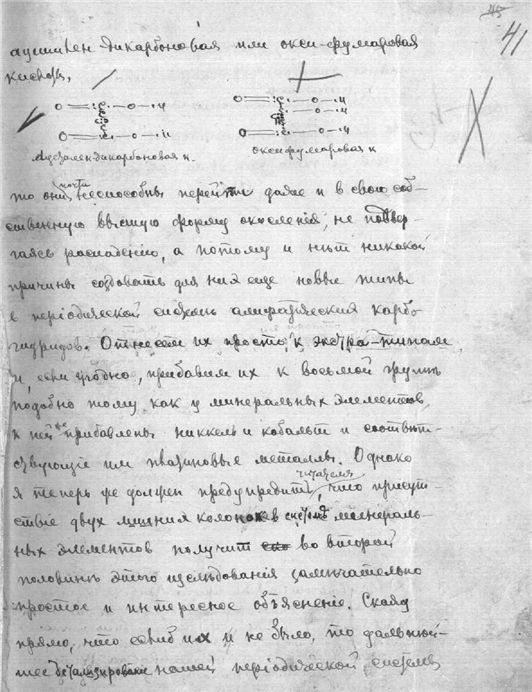 41
ацетилен-дикарбоновая или окси-фумаровая
кислота,
О = С – О – Н О = С – О – Н
О = С – О – Н О = С – О – Н
Ацетилендикарбоновая к. Оксифумаровая к
то они почти неспособны перейти далее и в свою соб-
ственную высшую форму окисления, не подвер-
гаясь распадению, а потому и нѣтъ никакой
причины создавать для них еще новые типы
в періодической системѣ алифатических карбо-
гидридов. Отнесем их просто к экстра-типам
и, если угодно, прибавим их к восьмой группѣ
подобно тому как у минеральных элементов,
к ней же прибавлены никкель и кобальт и соотвѣт-
ствующіе им платиновые металлы. Однако
я теперь же должен предупредить читателя, что присут-
ствіе двух лишних колонок в системѣ минераль-
ных элементов получит во второй
половинѣ этого изслѣдованія замѣчательно
простое и интересное объясненіе. Скажу
прямо, что если б их и не было, то дальнѣй-
шее нашей періодической системы